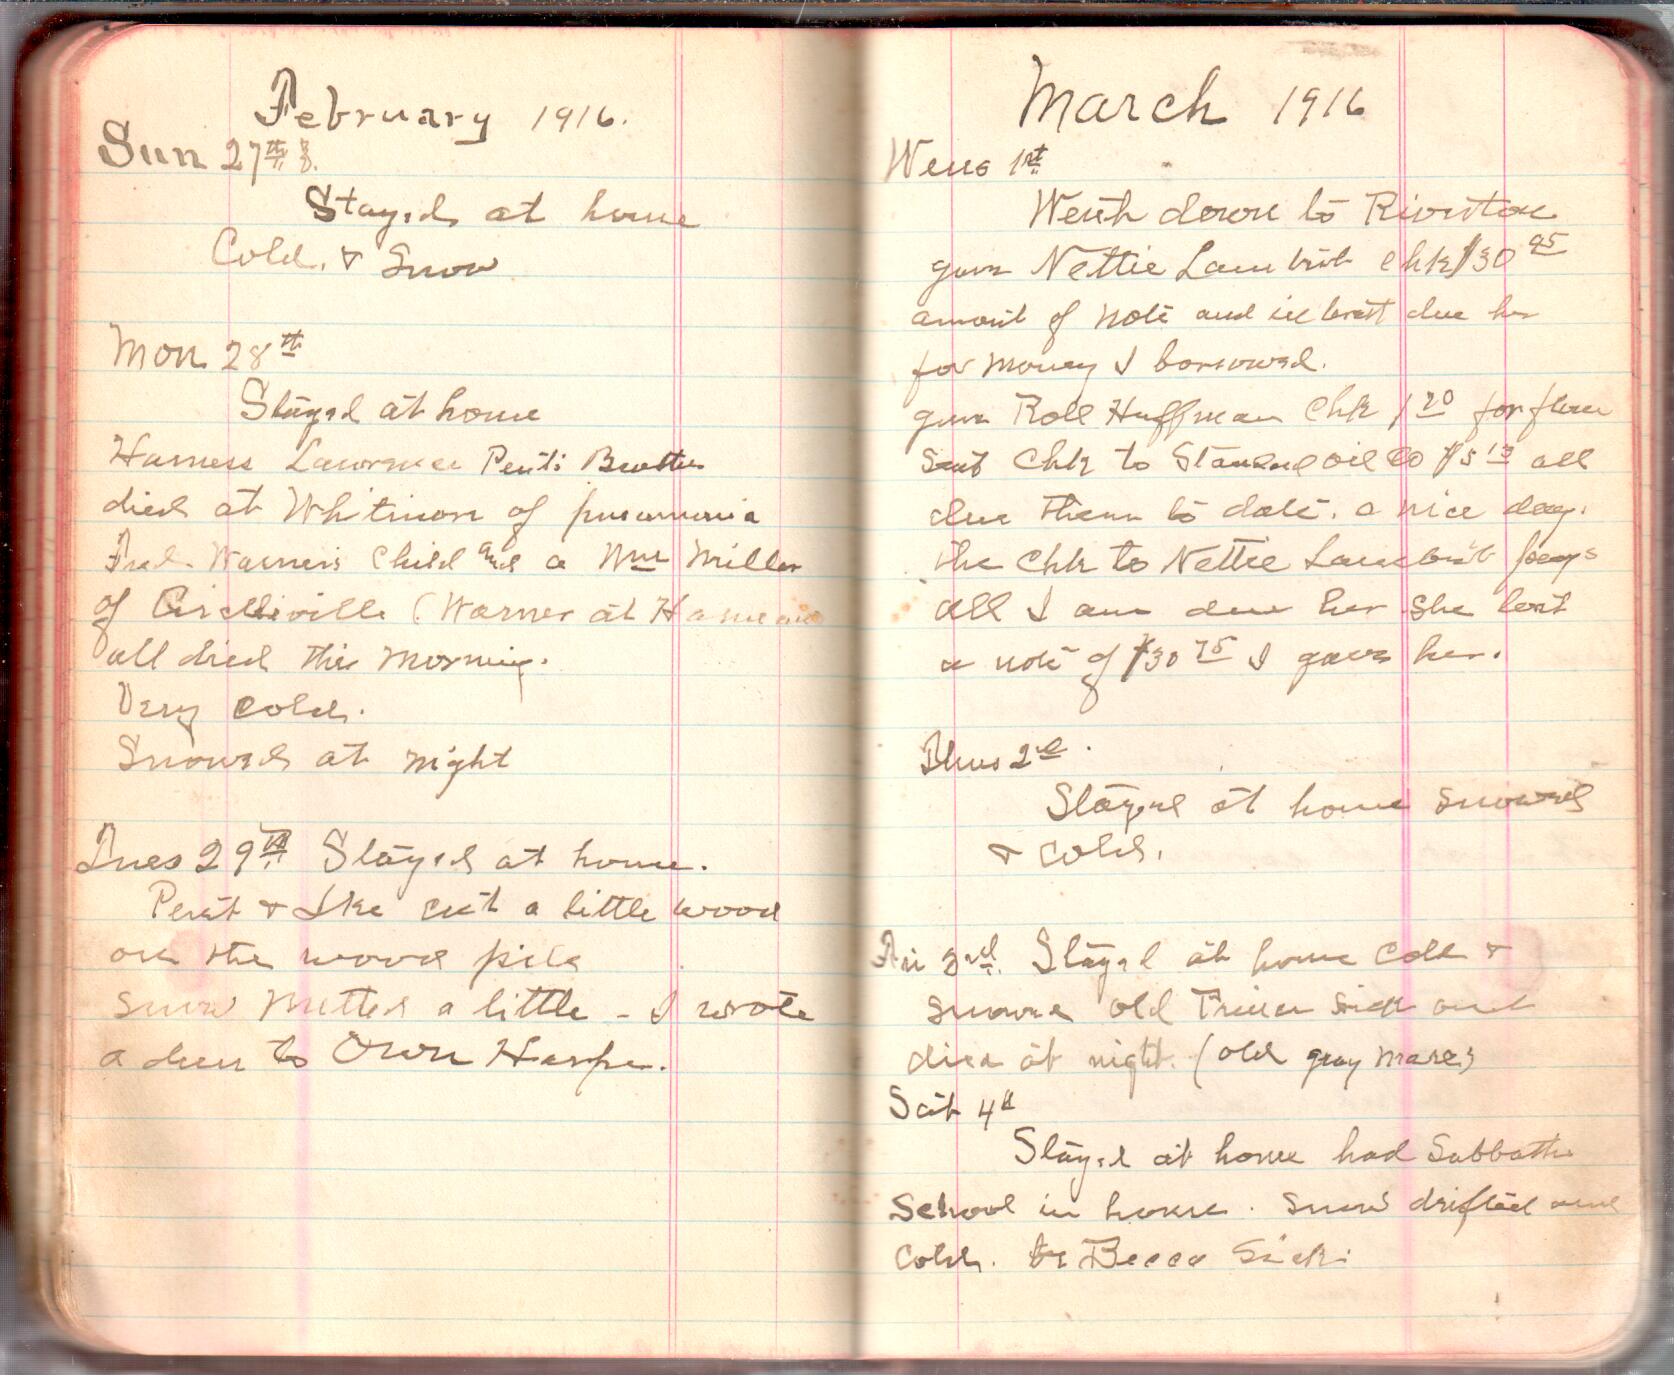 February 1916.
Sun 27th
Stayed at home
Cold. & Snow
Mon 28th
Stayed at home
Harness Lawrence Penti Brother
died at Whitmore of pneumonia
Fred Warner's Child and a Wm Miller
of Circleville (Warner at
all died this morning.
Very cold.
Snowed at night
Tues 29th Stayed at home.
Perit & Ike cut a little wood
on the wood pile
snow melted a little - I wrote
a dun to Orvn Harpe.
March 1916
Wens 1st
Went down to Riverton
gave Nettie Lambrit Chk $30 95
amount of note and interest due her
for money I borrowed.
gave Roll Huffman Chk 1 20 for flour
Sent Chk to Standard oil Co $5 13 all
due them to date. a nice day.
The Chk to Nettie Lambrit pays
all I am due her She lost
a note of $30 75 I gave her.
Thus 2d
Stayed at home snowed
& cold.
Fri 3rd. Stayed at home Cold &
snowed old sick and
died at night. (old gray mare)
Sat 4th
Stayed at home had Sabbath
School in house. Snow drifted and
Cold. Becca Sick.